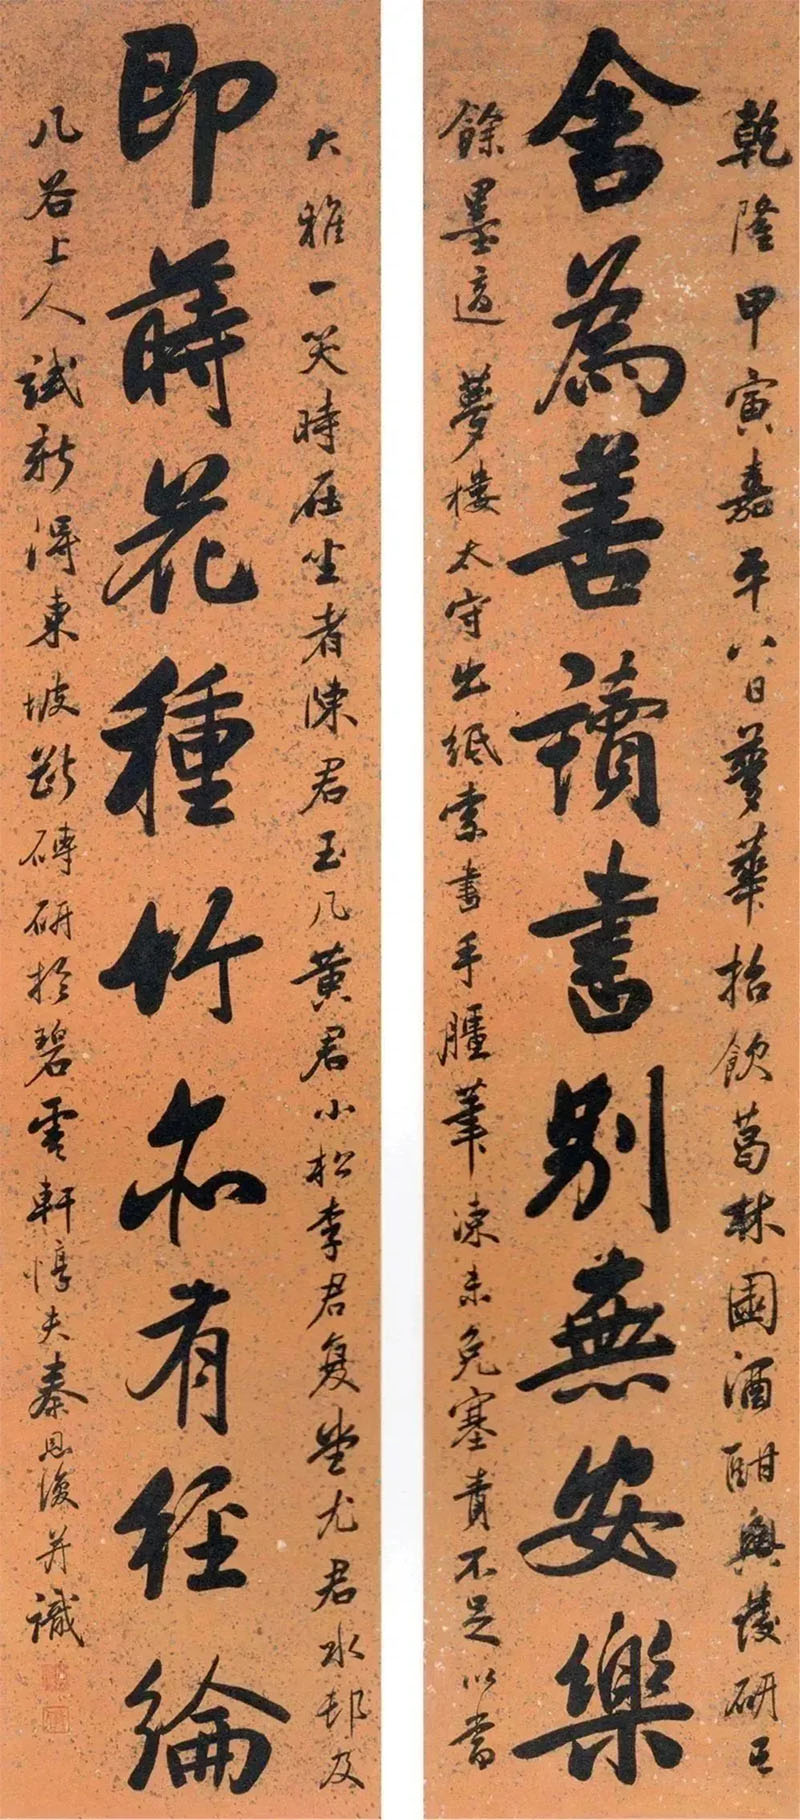 乾隆甲寅嘉平八日夢華招飲葛林園酒酣興發研
舍為善讀書別無安樂
餘墨適夢樓太守出紙索書手筆凍未免塞責不足以當
大雅一笑時在坐者陳君玉几黃君小松李君复堂尤君水邨及
即蒔花種竹亦有經綸
几谷上人試新得東坡斷磚研於碧雲軒惇夫秦恩復并識